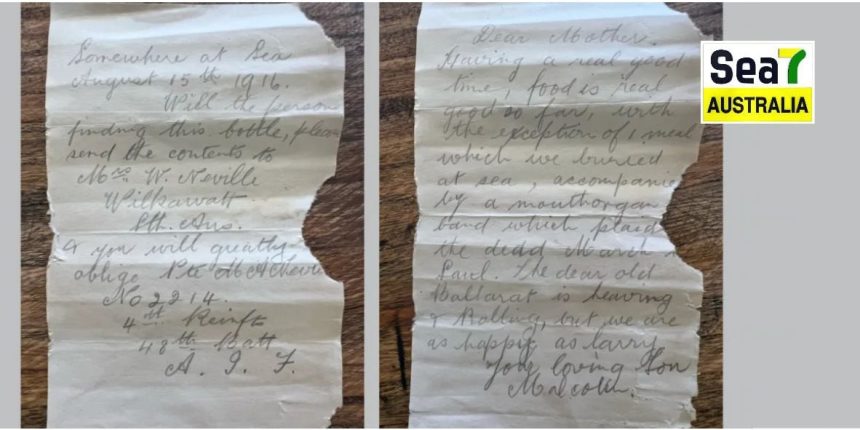 Somewhere at Sea
August 15th 1916.
Will the person
finding this bottle, please
send the contents to
Mrs W. Neville
Wilkawatt
Sth. Aus.
& you will greatly
oblige Pte M A Nevi
No 2214.
4th Reinfts
48th Batt
A. I. F.
Dear Mother.
Having a real good
time, food is real
good so far, with
the exception of 1 meal
which we buried
at sea, accompanie
by a mouthorgan
band which plaid
the dead March
Saul. The dear old
Ballarat is heaving
& Rolling, but we are
as happy as larry
your loving Son
Malcolm.
Sea7
AUSTRALIA